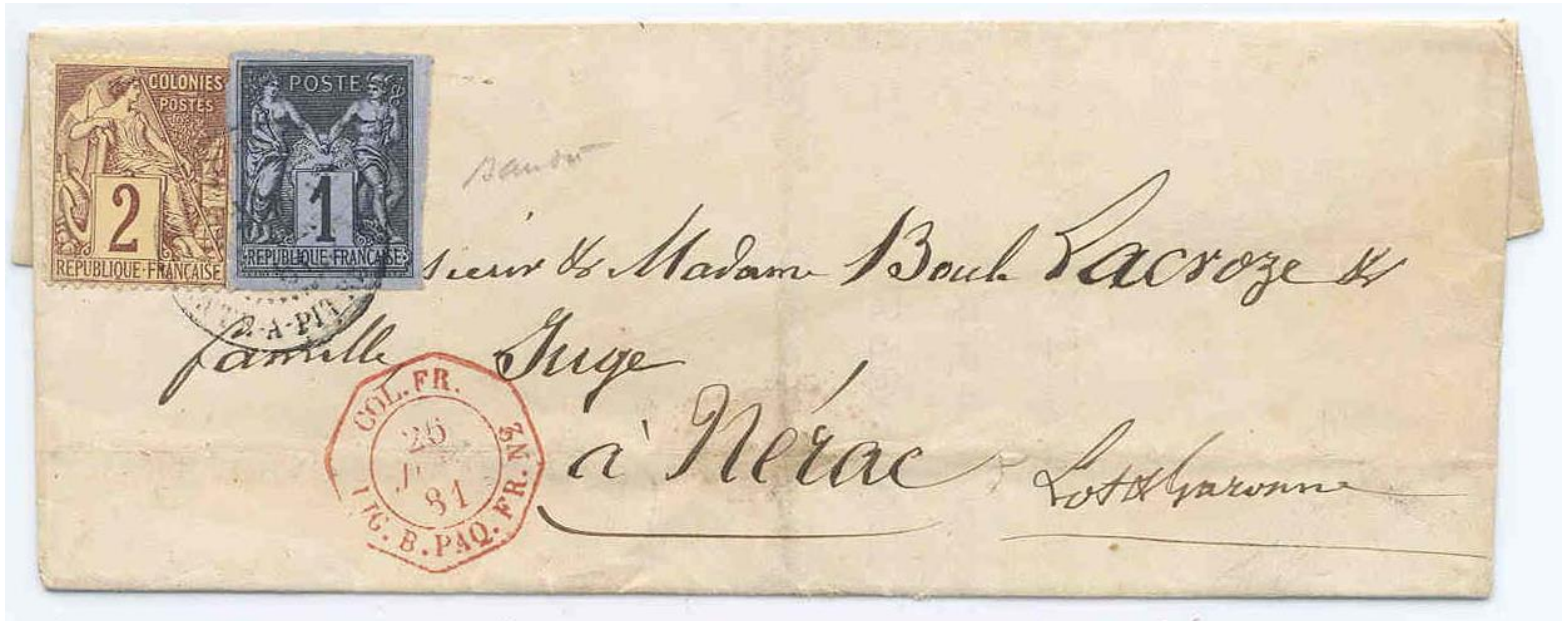 COLONIES
POSTES
2
REPUBLIQUE FRANÇAISE
POSTE
1
REPUBLIQUE FRANÇAISE
-A-PIT
sieur & Madame Boul Lacroze &
famille Juge
à Nérac Lot & Garonne
COL. FR.
26
81
LIG. B. PAQ. FR. N2